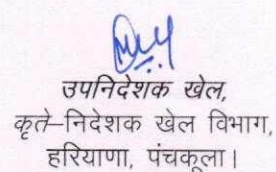 उपनिदेशक खेल,
कृते–निदेशक खेल विभाग,
हरियाणा, पंचकूला।